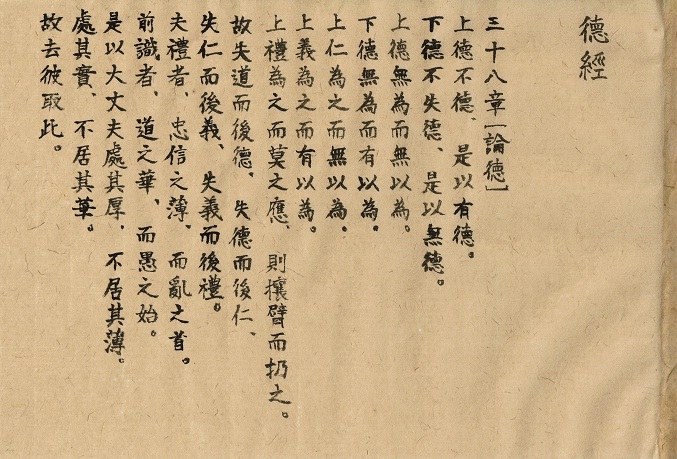 德經
三十八章［論德］
上德不德、是以有德。
下德不失德、是以無德。
上德無為而無以為。
下德無為而有以為。
上仁為之而無以為。
上義為之而有以為。
上禮為之而莫之應、則攘臂而扔之。
故失道而後德、失德而後仁、
失仁而後義、失義而後禮。
夫禮者、忠信之薄、而亂之首。
前識者、道之華、而愚之始。
是以大丈夫處其厚、不居其薄。
處其實、不居其華。
故去彼取此。